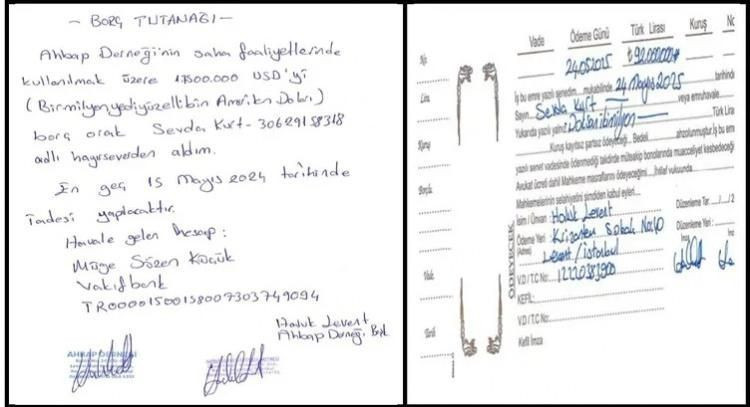 - BORÇ TUTANAĞI -
Ahbap Derneği'nin saha faaliyetlerinde
kullanılmak üzere 1.7500.000 USD'yi
(Birmilyonyediyüzellibin Amerikan Doları)
borç olarak Sevda Kurt - 30629158318
adlı hayırseverden aldım.
En geç 15 Mayıs 2024 tarihinde
iadesi yapılacaktır.
Havale gelen hesap:
Müge Sözen Küçük
Vakıfbank
TR00001500158007303749094
Haluk Levent
Ahbap Derneği Bşk.
AHBAP DERNEĞİ
Vade Ödeme Günü Türk Lirası Kuruş No
24.05.2025 ₺92.000.000
İş bu emre yazılı senedim mukabilinde 24 Mayıs 2025 tarihinde
Sayın Sevda Kurt veya emruhavale
Yukarıda yazılı yalnız Doksanikimilyon Türk Lira
Kuruş kayıtsız şartsız ödeyeceğim. Bedeli ahzolunmuştur. İş bu em
yazılı senet vadesinde ödenmediği takdirde müteakip bonolarında muacceliyet kesbedeceği
Avukat ücreti dahil Mahkeme masraflarını ödeyeceğimi İhtilaf vukuunda
Mahkemelerinin selahiyetini şimdiden kabul eylerim
ÖDEYECEK
İsim / Ünvan Haluk Levent Düzenleme Tar. / / 2
Ödeme Yeri : Krizantem Sokak No:40 Düzenleme Yeri :
(Adres) Levent / İstanbul İmza
V.D / T.C No: 12220383900
KEFİL:
V.D / T.C No:
Kefil İmza